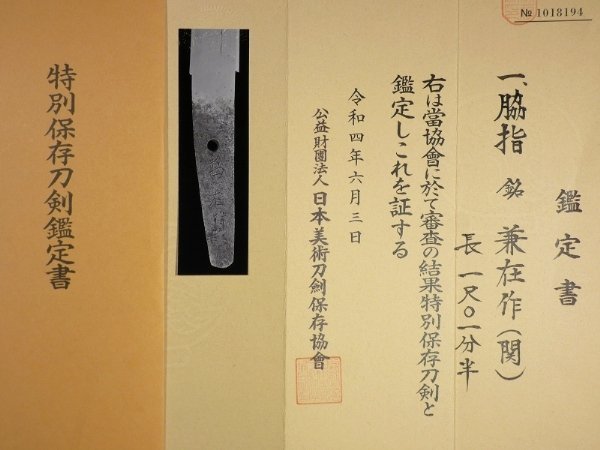 № 1018194
鑑定書
一、脇指 銘 兼在作(関)
長 一尺〇一分半
右は當協會に於て審査の結果特別保存刀剣と
鑑定しこれを証する
令和四年六月三日
公益財團法人 日本美術刀劍保存協會
特別保存刀剣鑑定書